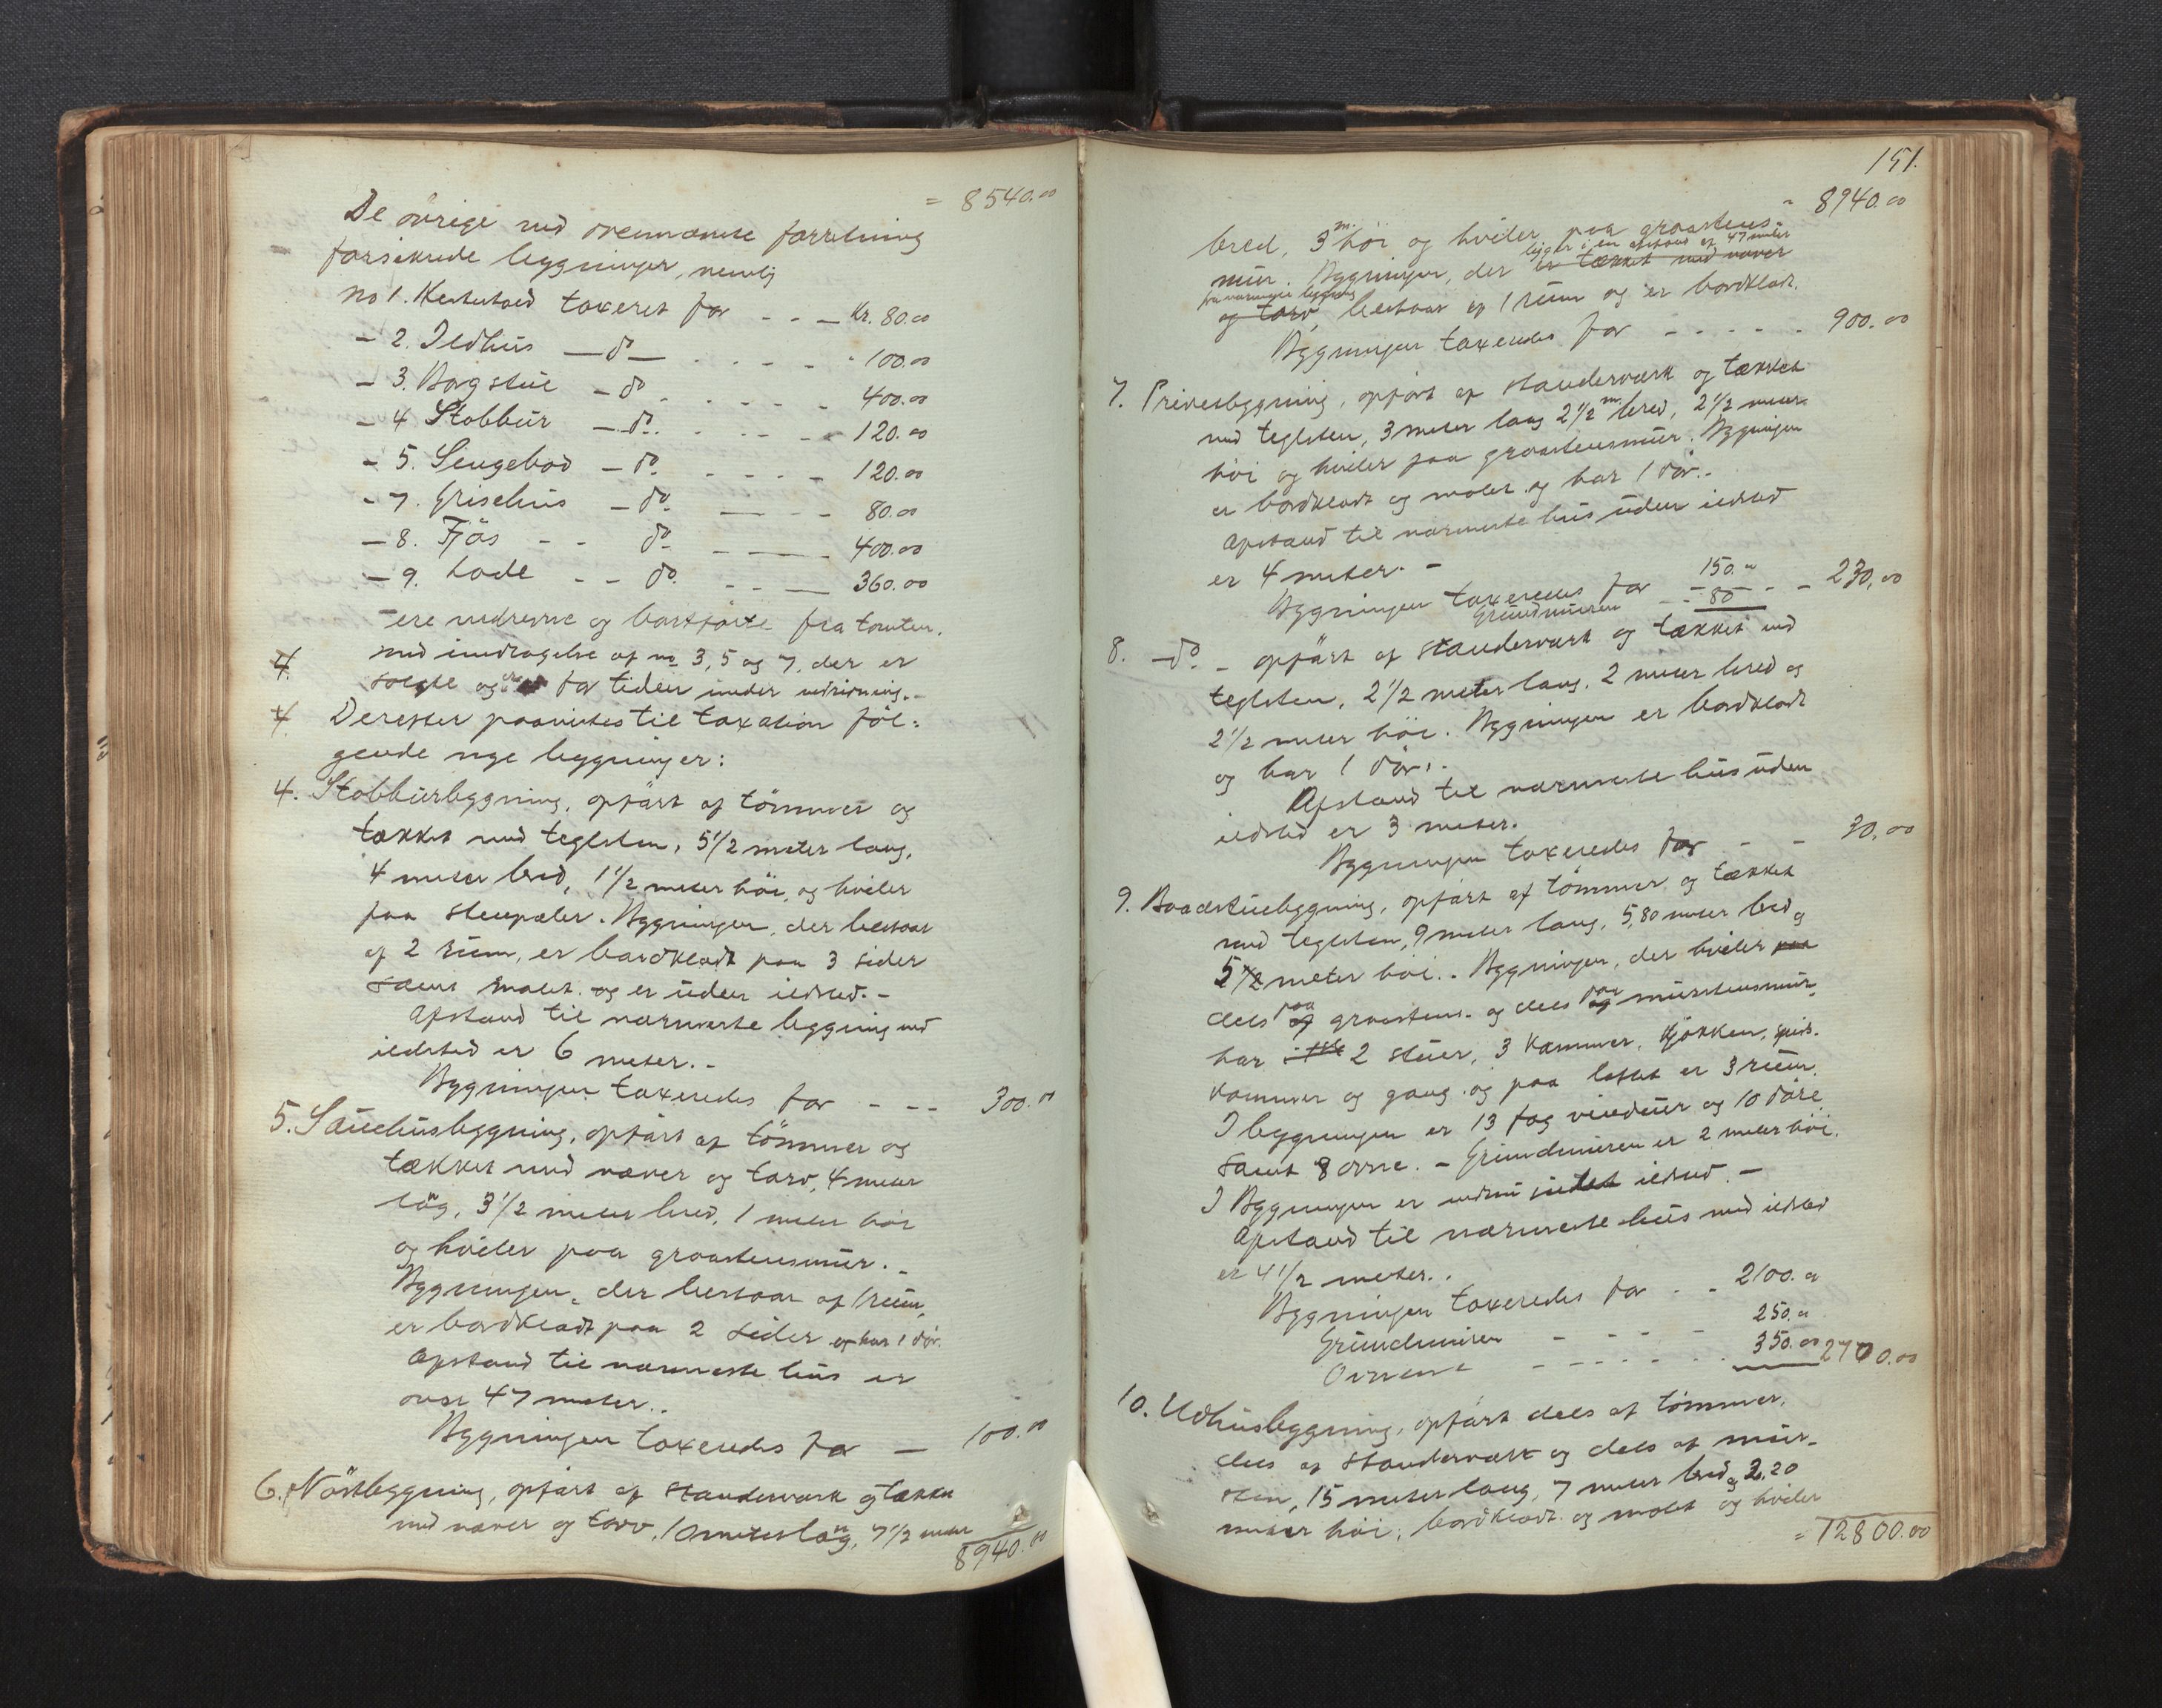 = 8540.00
De övrige ved ovennævnte forretning
forsikrede bygninger, nemlig
No 1. Hestestald taxeret for - - - Kr. 80.00
- 2. Ildhus - do - - - - - 100.00
- 3. Borgstue - do - - - - - 400.00
- 4 Stobbur - do. - - - - 120.00
- 5. Sengebod - do. - - - - 120.00
- 7. Grisehus - do. - - - 80.00
- 8. Fjös - - do. - - - 400.00
- 9. Lade - - do. - - - 360.00
- ere nedrevne og bortförte fra tomten,
med undtagelse af no 3, 5 og 7, der er
solgte og er for tiden under nedrivning.-
4. Derefter paavistes til taxation föl=
gende nye bygninger:
4. Stobburbygning, opfört af tömmer og
tækket med teglsten, 5 1/2 meter lang,
4 meter bred, 1 1/2 meter höi, og hviler
paa stenpæler. Bygningen, der bestaar
af 2 rum, er bordklædt paa 3 sider
samt malet og er uden ildsted.-
Afstand til nærmeste bygning med
ildsted er 6 meter.-
Bygningen taxeredes for - - - 300.00
5. Sauehusbygning, opfört af tömmer og
tækket med næver og torv, 4 meter
lãg, 3 1/2 meter bred, 1 meter höi
og hviler paa graastensmur.-
Bygningen, der bestaar af 1 rum,
er bordklædt paa 2 sider og har 1 dör.
Afstand til nærmeste hus er
over 47 meter..
Bygningen taxeredes for - 100.00
6. Nöstbygning, opfört af standerværk og tække
med næver og torv, 10 meter lang, 7 1/2 meter
8940.00
151.
= 8940.00
bred, 3 m. höi og hviler paa graastens=
ligger i en afstand af 47 meter
mur. Bygningen, der er tækket med næver
fra nærmeste bygning
og torv, bestaar af 1 rum og er bordklædt.
Bygningen taxeredes for - - - - - 900.00
7. Privetbygning, opfört af standerværk og tækket
med teglsten, 3 meter lang 2 1/2 m. bred, 2 1/2 meter
höi og hviler paa graastensmur. Bygningen
er bordklædt og malet og har 1 dör.-
Afstand til nærmeste hus uden ildsted
er 4 meter. -
Bygningen taxeredes for 150.00
Grundmuren - - 80 - - 230,00
8. - do. - opfört af standerværk og tækket med
teglsten, 2 1/2 meter lang, 2 meter bred og
2 1/2 meter höi. Bygningen er bordklædt
og har 1 dör.-
Afstand til nærmeste hus uden
ildsted er 3 meter.
Bygningen taxeredes for - - 30,00
9. Baadstuebygning, opfört af tömmer og tækket
med teglsten, 9 meter lang, 5,80 meter bred og
5 1/2 meter höi.. Bygningen, der hviler paa
dels paa graastens- og dels paa murstensmur,
har 2 stuer, 3 kammer, kjökken, spis-
kammer og gang og paa loftet er 3 rum.
I bygningen er 13 fag vinduer og 10 döre
samt 8 ovne. - Grundmuren er 2 meter höi.
I Bygningen er ildsted. -
Afstand til nærmeste hus med ildsted
er 4 1/2 meter..
Bygningen taxeredes for - - 2100.00
Grundmuren - - - - 250.00
Ovnene - - - - - - 350.00 2700.00
10. Udhusbygning, opfört dels af tömmer,
dels af standerværk og dels af mur-
sten, 15 meter lang, 7 meter bred og 3,20
meter höi, bordklædt og malet og hviler
= 12800.00